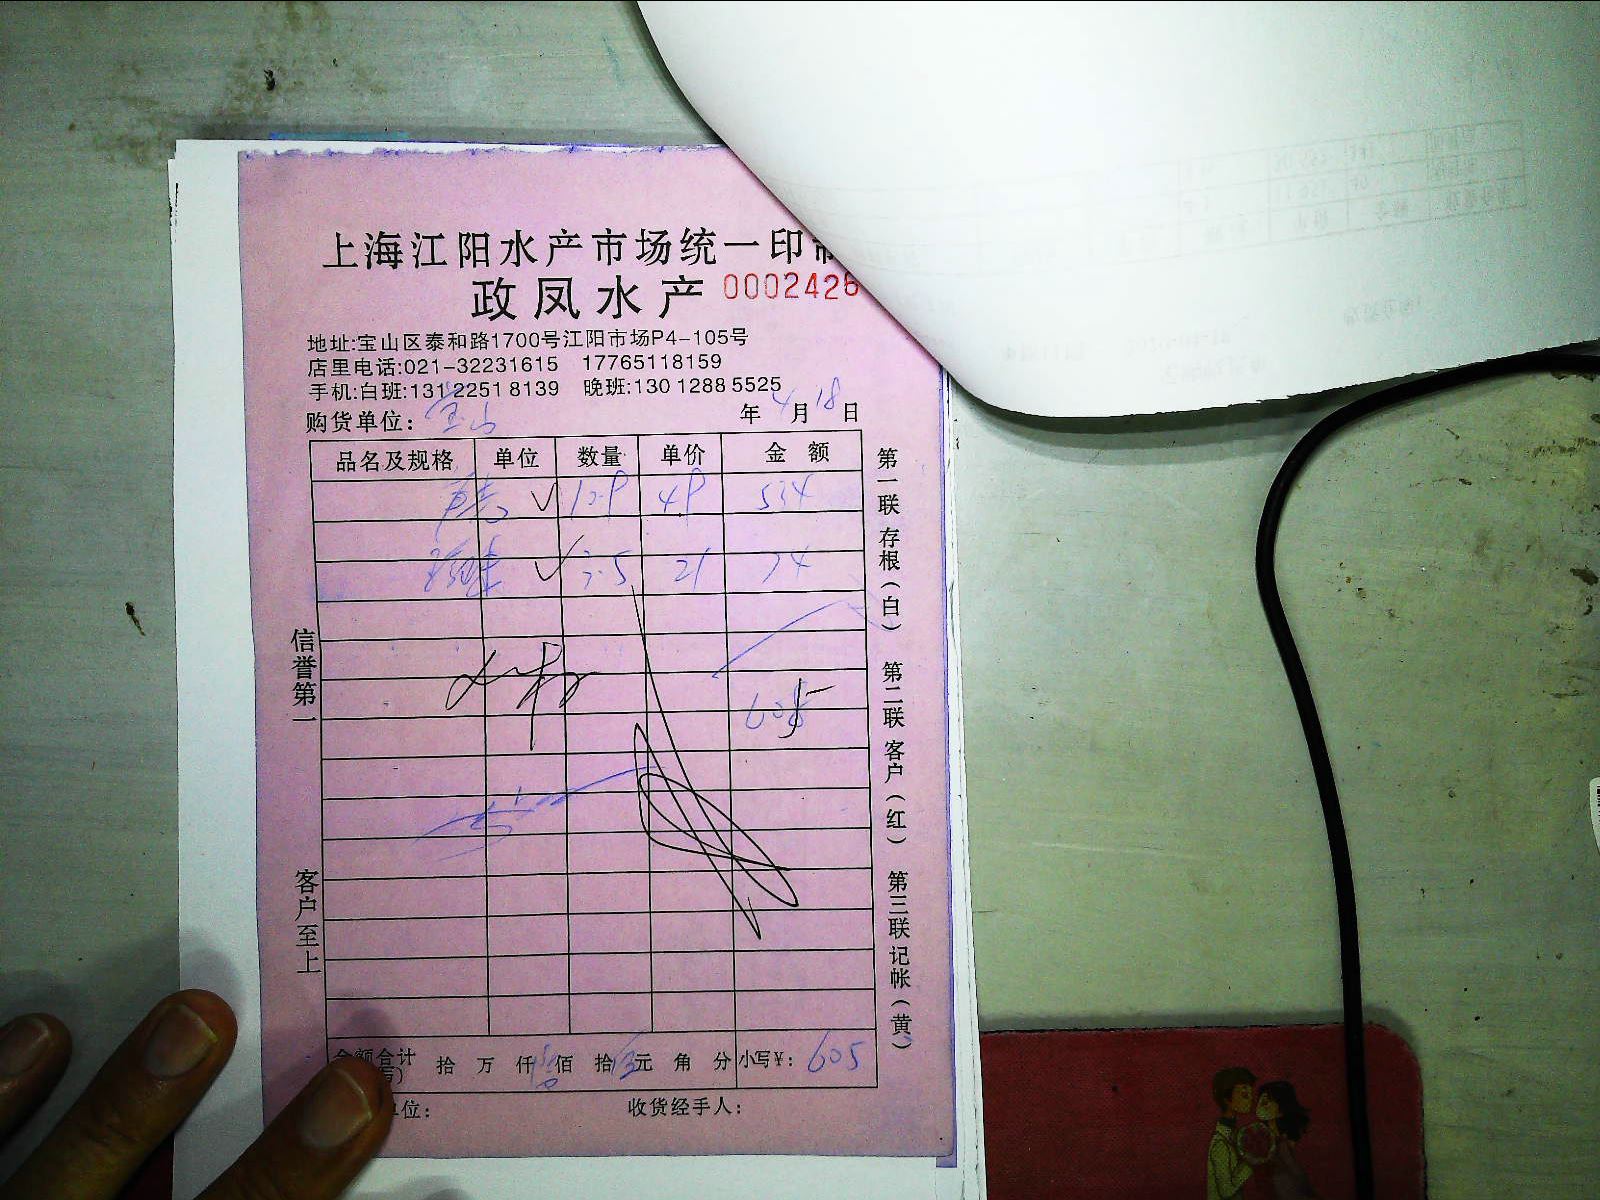 上海江阳水产市场统一印制
政凤水产 0002426
地址:宝山区泰和路1700号江阳市场P4-105号
店里电话:021-32231615 17765118159
手机:白班:131 2251 8139 晚班:130 1288 5525
购货单位: 年4月18日
品名及规格 单位 数量 单价 金额
534
3.5 21 74
605
金额合计 拾 万 仟 佰 拾 元 角 分 小写¥: 605
单位: 收货经手人:
信誉第一
客户至上
第一联存根(白)
第二联客户(红)
第三联记帐(黄)